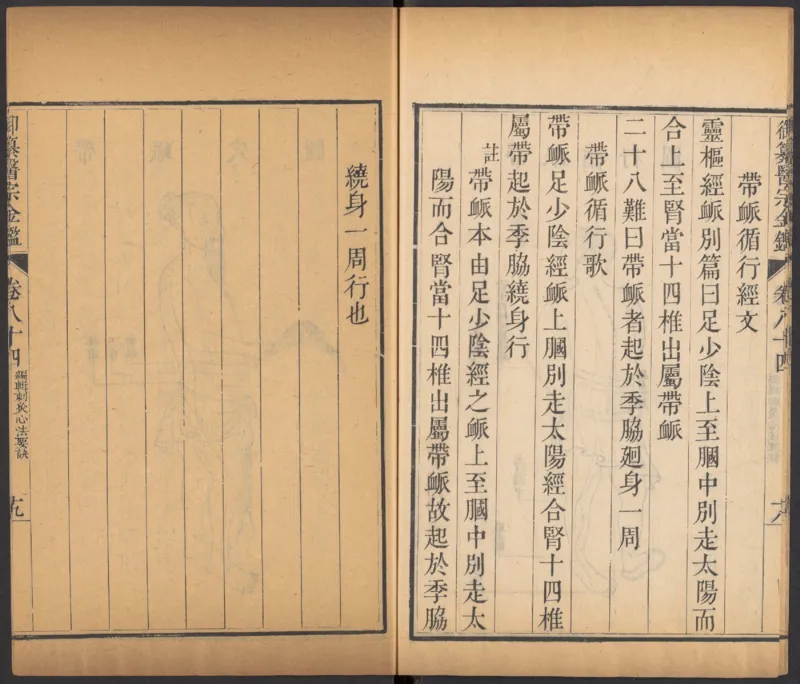 御纂醫宗金鑑
卷八十四
十八
帶䘑循行經文
靈樞經䘑別篇曰足少陰上至膕中別走太陽而
合上至腎當十四椎出屬帶䘑
二十八難曰帶䘑者起於季脇廻身一周
帶䘑循行歌
帶䘑足少陰經䘑上膕別走太陽經合腎十四椎
屬帶起於季脇繞身行
註
帶䘑本由足少陰經之䘑上至膕中別走太
陽而合腎當十四椎出屬帶䘑故起於季脇
繞身一周行也
御纂醫宗金鑑
卷八十四
編輯刺灸心法要訣
十九